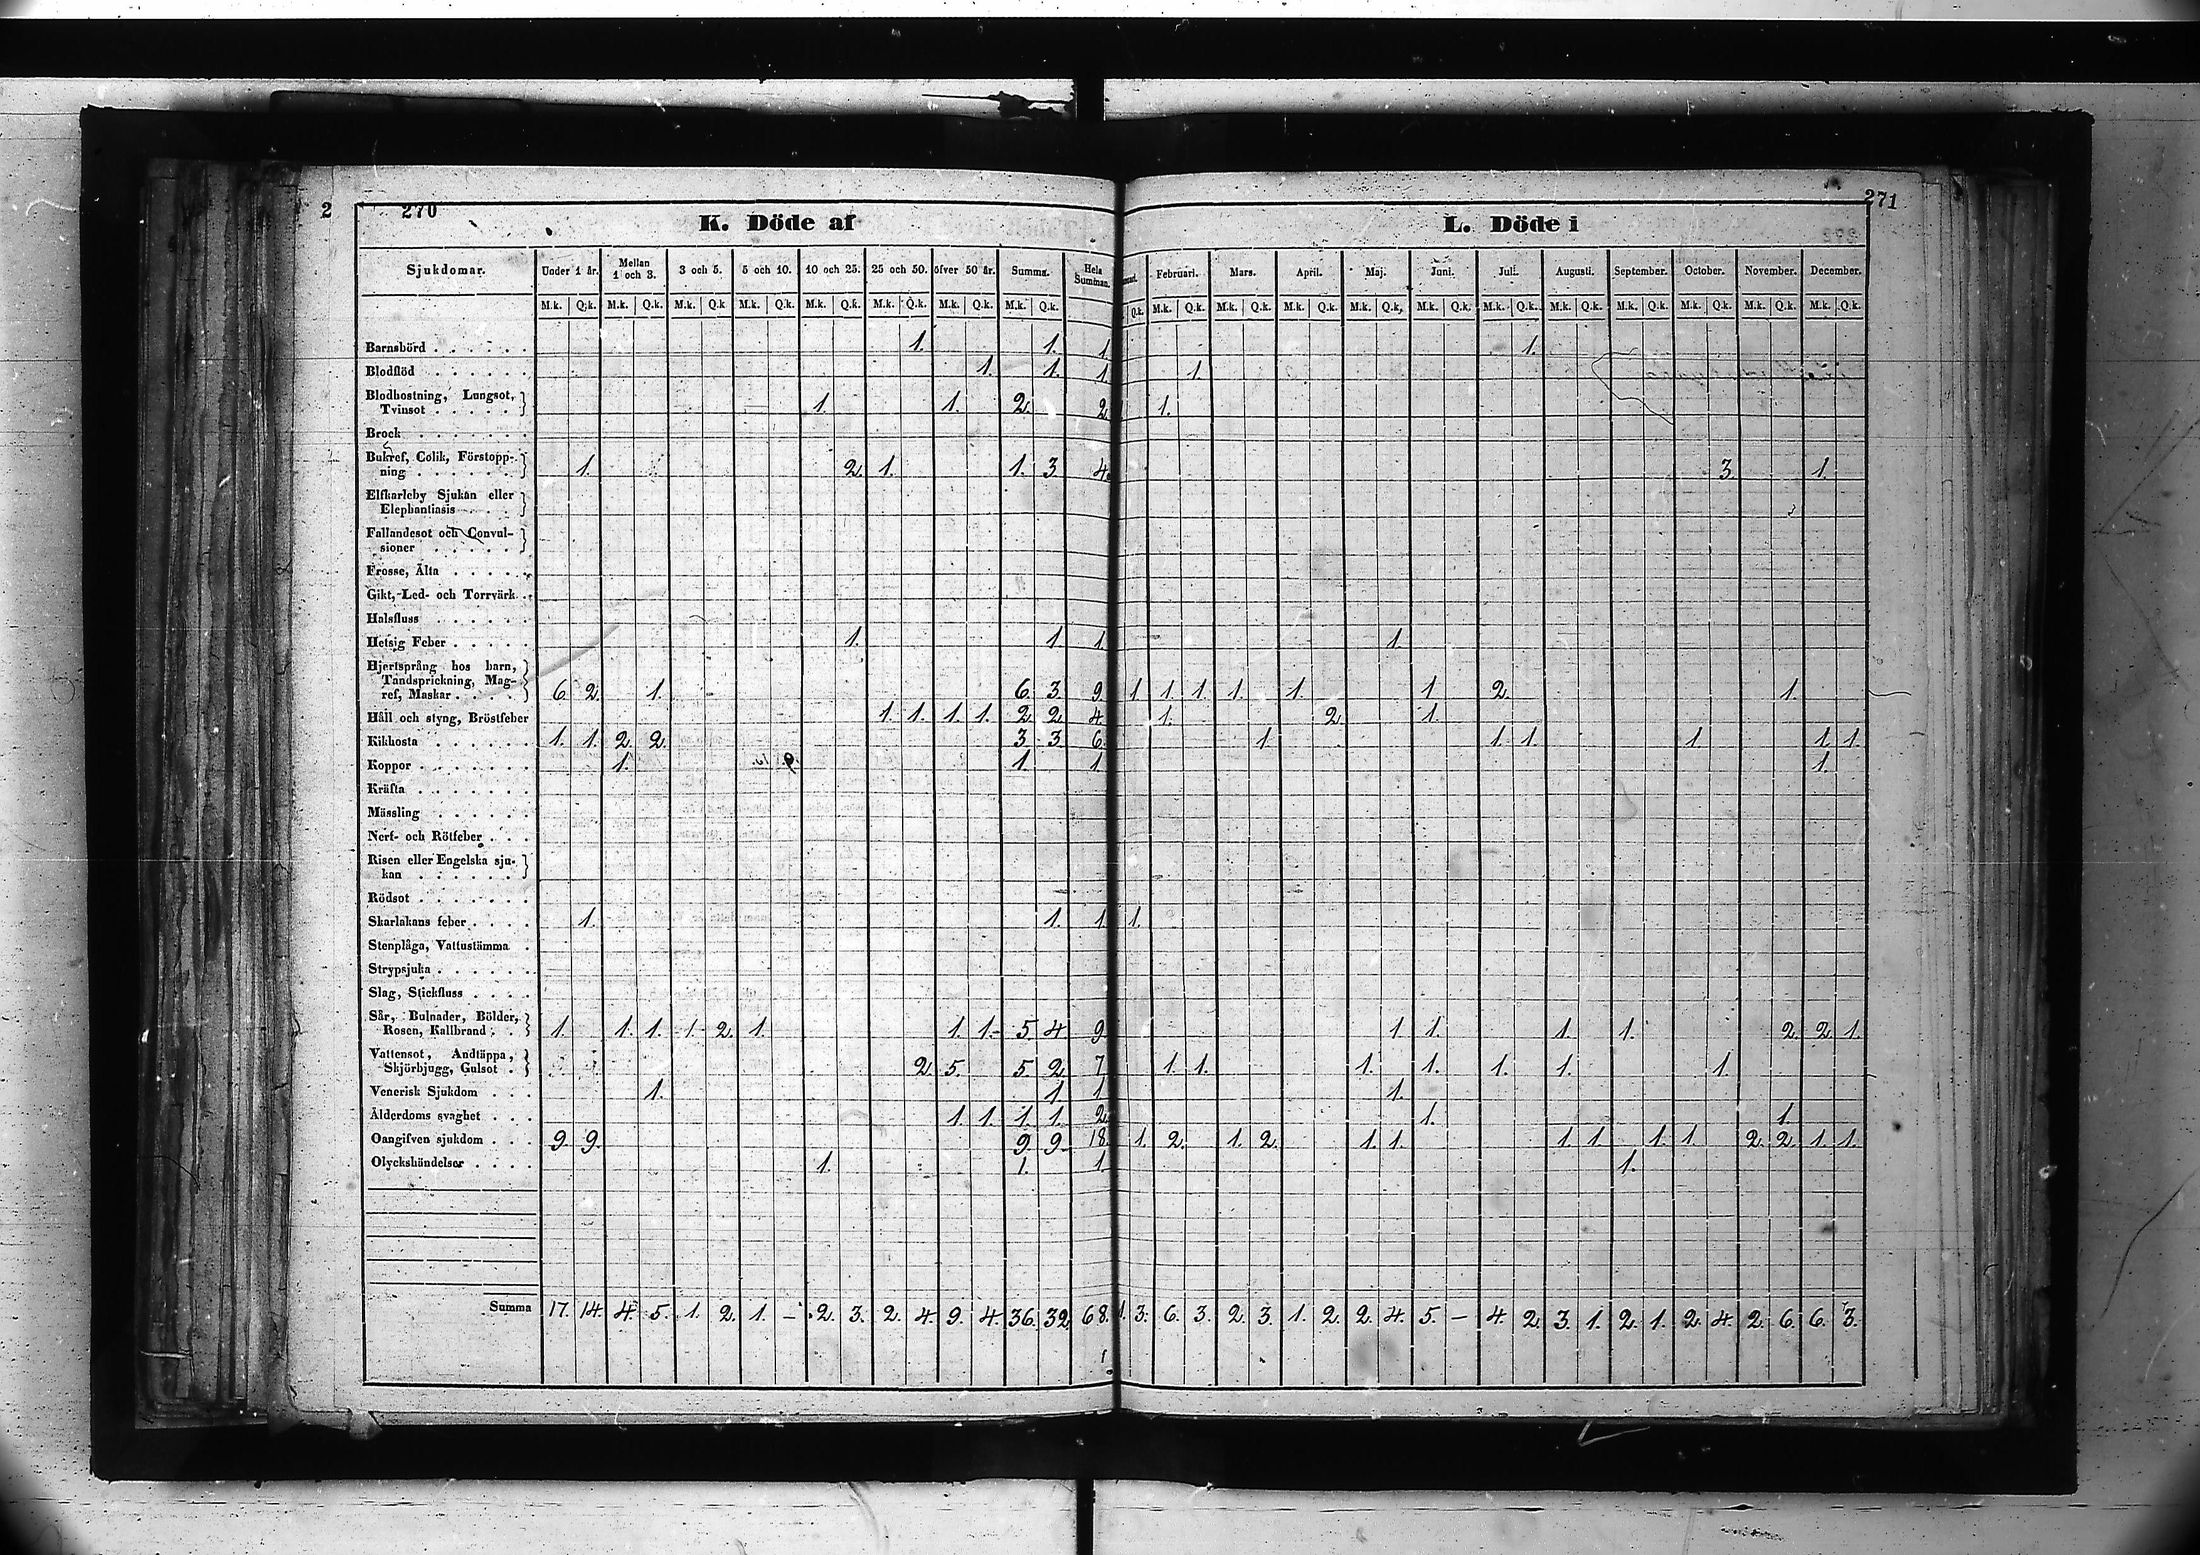 2 270 271
K. Döde af L. Döde i
Sjukdomar. Under 1 år. Mellan 1 och 3. 3 och 5. 5 och 10. 10 och 25. 25 och 50. öfver 50 år. Summa. Hela Summan. Februari. Mars. April. Maj. Juni. Juli. Augusti. September. October. November. December.
M.k. Q.k. M.k. Q.k. M.k. Q.k M.k. Q.k. M.k. Q.k. M.k. Q.k. M.k. Q.k. M.k. Q.k. Q.k. M.k. Q.k. M.k. Q.k. M.k. Q.k. M.k. Q.k. M.k. Q.k. M.k. Q.k. M.k. Q.k. M.k. Q.k. M.k. Q.k. M.k. Q.k. M.k. Q.k.
Barnsbörd 1. 1. 1. 1.
Blodflöd 1. 1. 1. 1.
Blodhostning, Lungsot,
Tvinsot 1. 1. 2. 2. 1.
Brock
Bukref, Colik, Förstopp-
ning 1. 2. 1. 1. 3. 4. 3. 1.
Elfkarleby Sjukan eller
Elephantiasis
Fallandesot och Convul-
sioner
Frosse, Älta
Gikt, Led- och Torrvärk
Halsfluss
Hetsig Feber 1. 1. 1. 1.
Hjertsprång hos barn,
Tandsprickning, Mag-
ref, Maskar 6. 2. 1. 6. 3. 9. 1. 1. 1. 1. 1. 1. 2. 1.
Håll och styng, Bröstfeber 1. 1. 1. 1. 2. 2. 4. 1. 2. 1.
Kikhosta 1. 1. 2. 2. 3. 3. 6. 1. 1. 1. 1. 1. 1.
Koppor 1. 1. 1. 1.
Kräfta
Mässling
Nerf- och Rötfeber
Risen eller Engelska sju-
kan
Rödsot
Skarlakans feber 1. 1. 1. 1.
Stenplåga, Vattustämma
Strypsjuka
Slag, Stickfluss
Sår, Bulnader, Bölder,
Rosen, Kallbrand 1. 1. 1. 1. 2. 1. 1. 1. 5. 4. 9. 1. 1. 1. 1. 2. 2. 1.
Vattensot, Andtäppa,
Skjörbjugg, Gulsot 2. 5. 5. 2. 7. 1. 1. 1. 1. 1. 1. 1.
Venerisk Sjukdom 1. 1. 1. 1.
Ålderdoms svaghet 1. 1. 1. 1. 2. 1. 1.
Oangifven sjukdom 9. 9. 9. 9. 18. 1. 2. 1. 2. 1. 1. 1. 1. 1. 1. 2. 2. 1. 1.
Olyckshändelser 1. 1. 1. 1.
Summa 17. 14. 4. 5. 1. 2. 1. – 2. 3. 2. 4. 9. 4. 36. 32. 68. 1. 3. 6. 3. 2. 3. 1. 2. 2. 4. 5. – 4. 2. 3. 1. 2. 1. 2. 4. 2. 6. 6. 3.